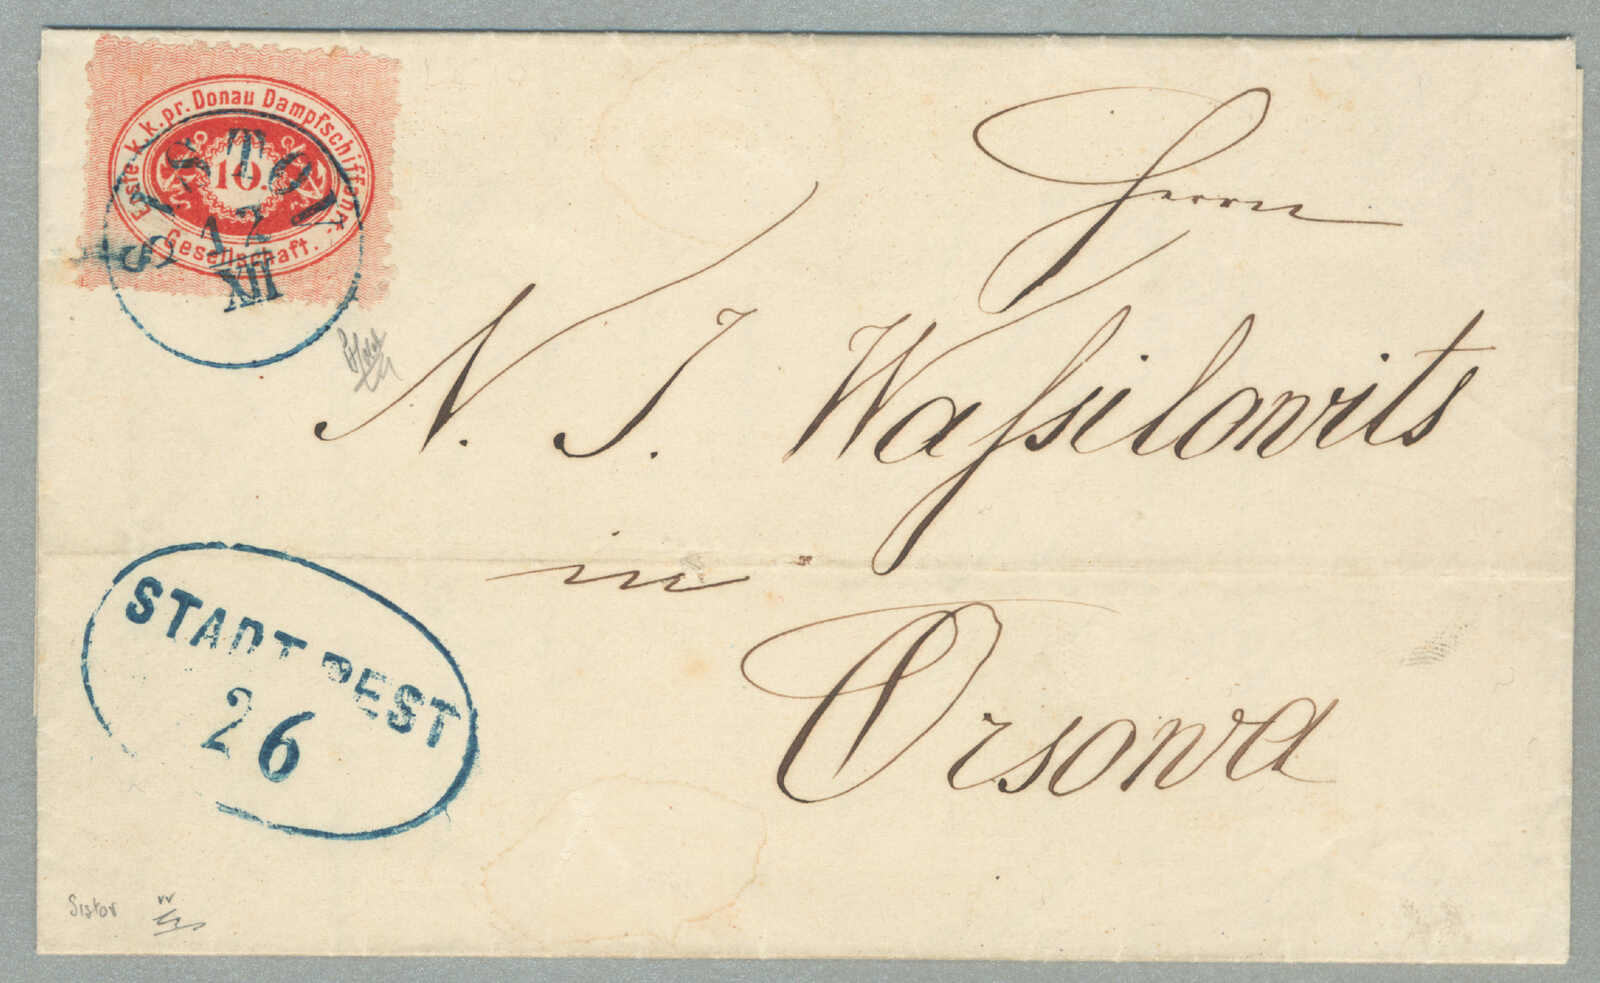 Erste k. k. pr. Donau Dampfschiffahrt-
10.
Gesellschaft.
SISTOV
17
XII
Herrn
N. J. Waſsilowits
in
Orsowa
STADT PEST
26
Sistov